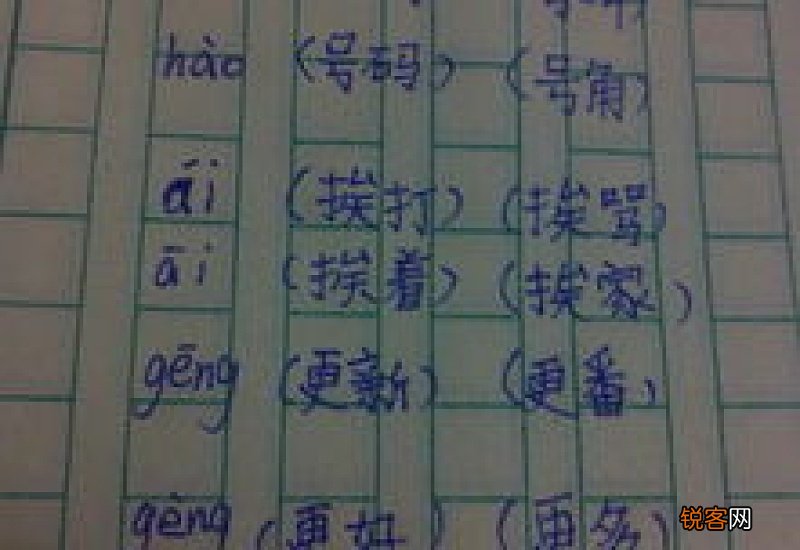 hào (号码) (号角)
ái (挨打) (挨骂)
āi (挨着) (挨家)
gēng (更新) (更番)
gèng (更好) (更多)
锐客网